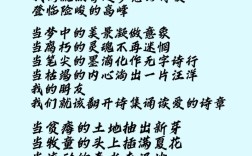 登临险峻的高峰
当梦中的美景凝做意象
当腐朽的灵魂不再迷惘
当笔尖的墨滴化作无字诗行
当枯竭的内心淌出一片汪洋
我的朋友
我们就该翻开诗集诵读爱的诗章
当贫瘠的土地抽出新芽
当牧童的头上插满夏花